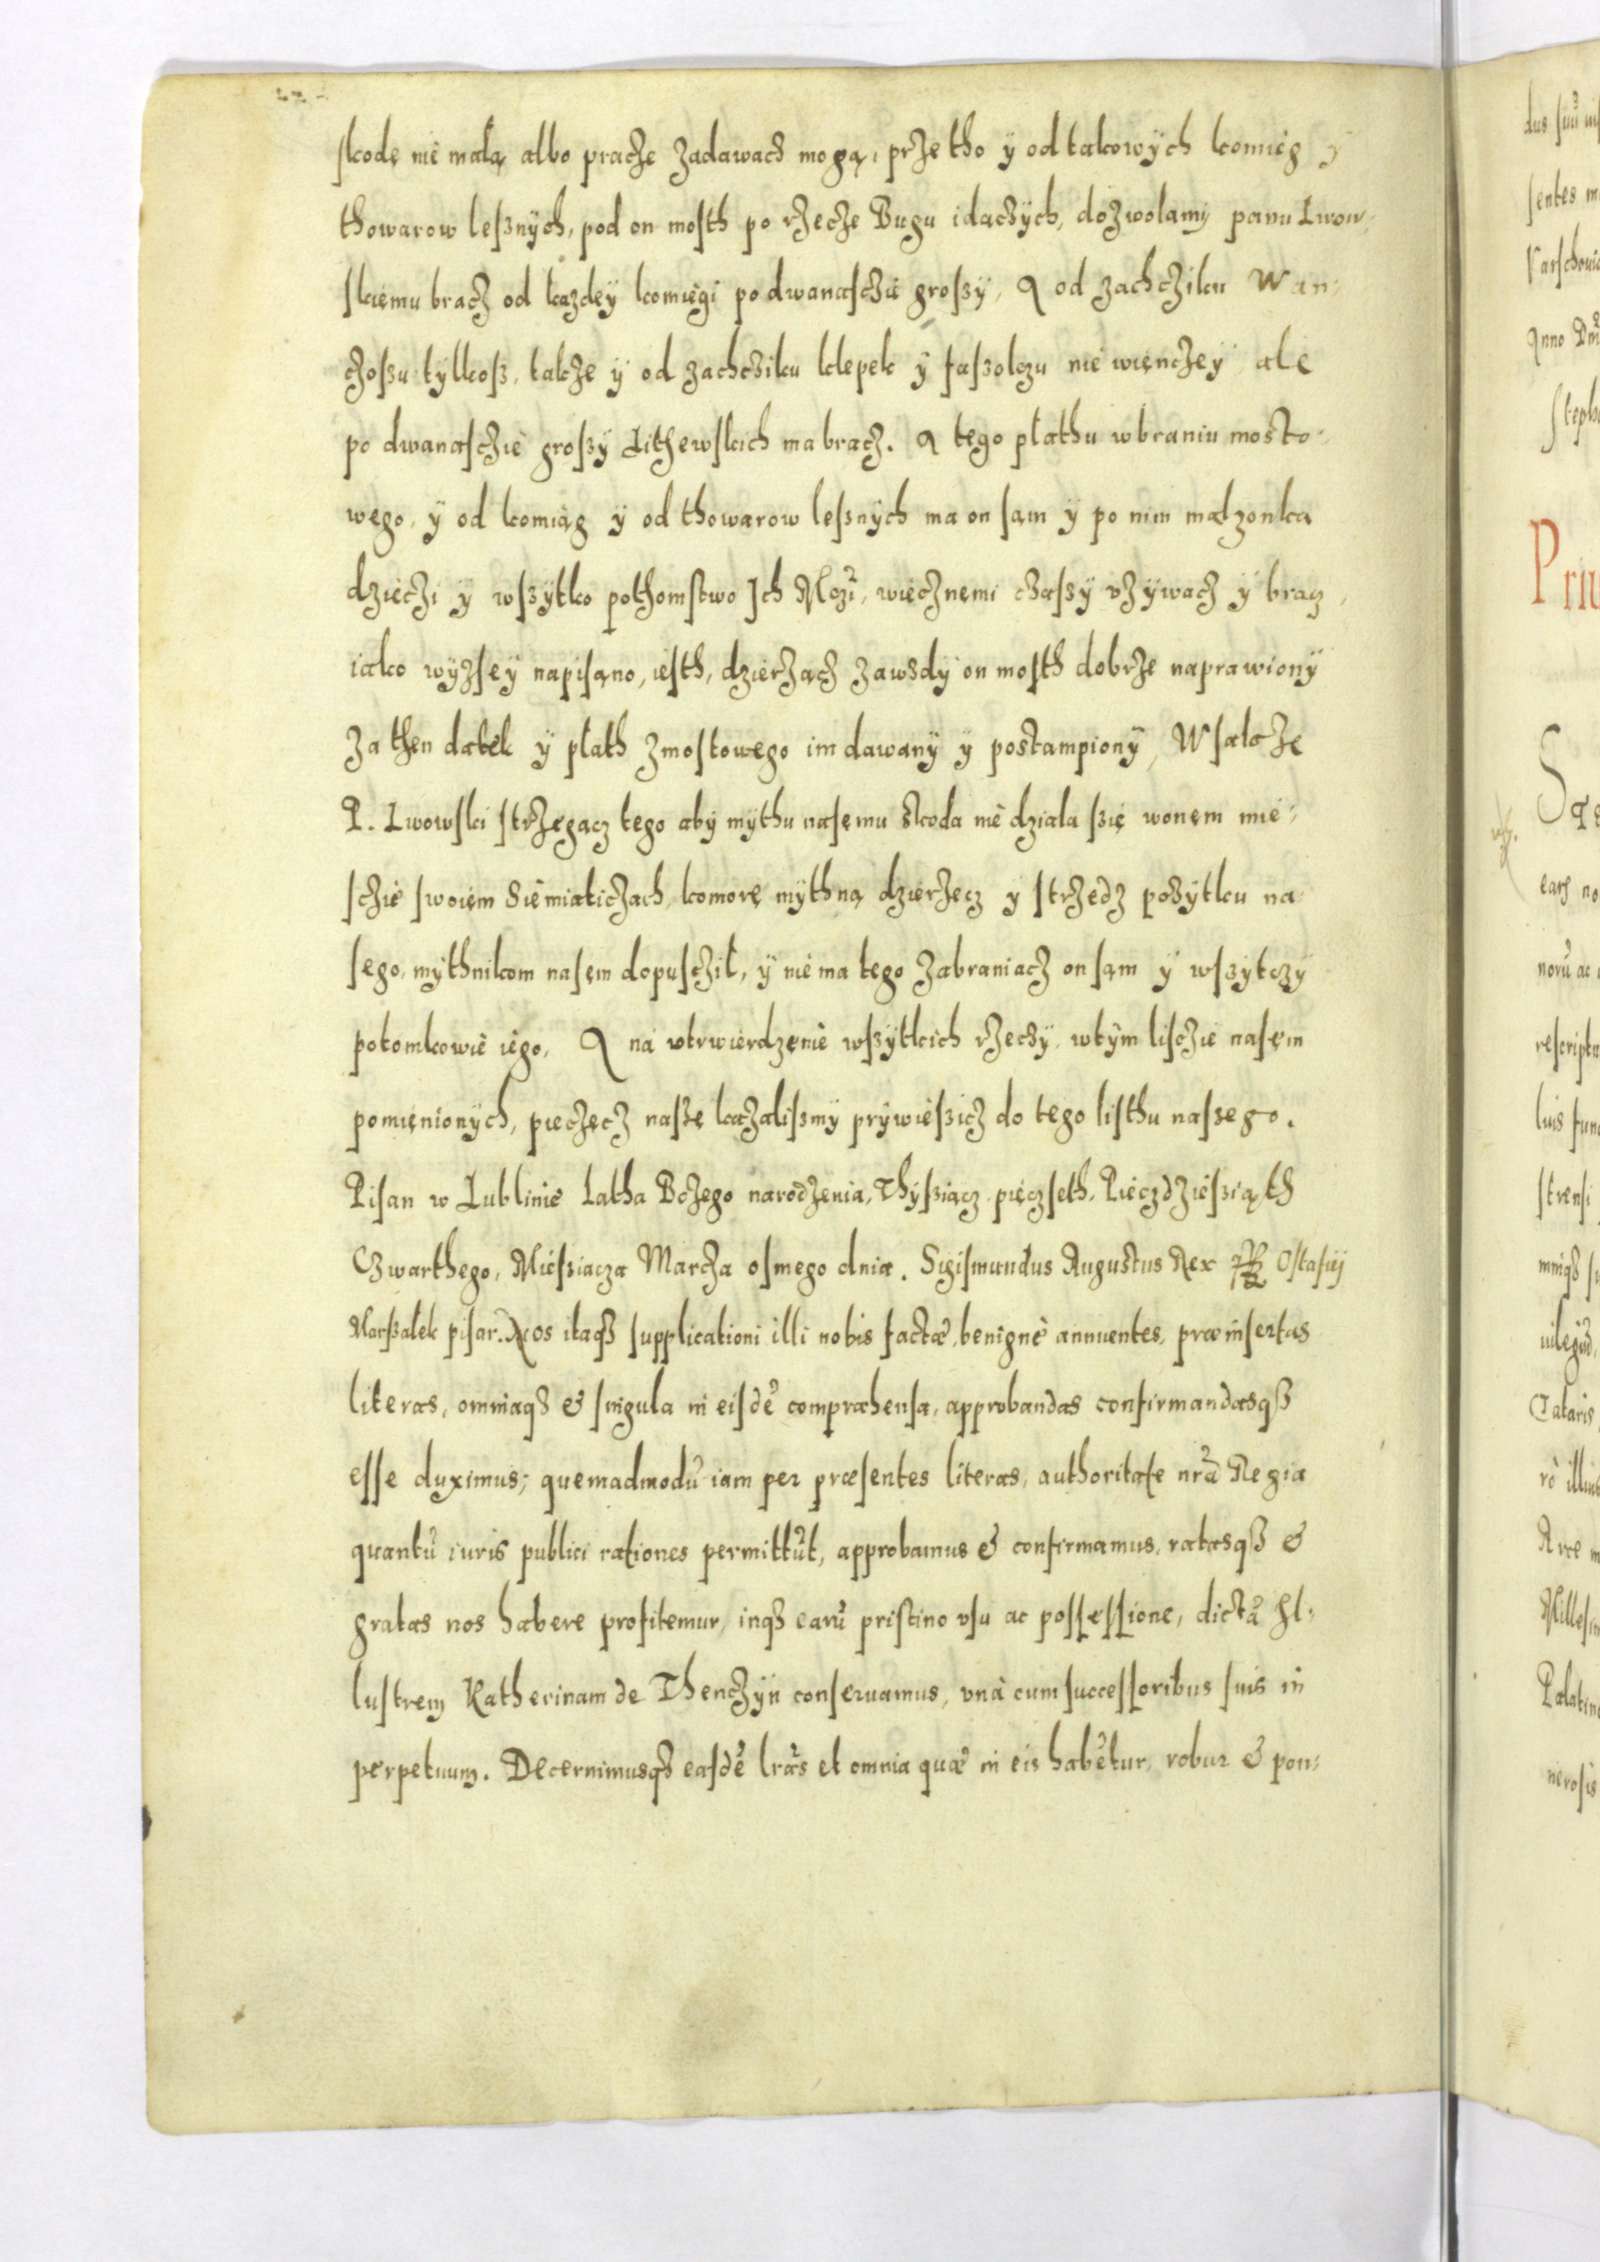 skodę nie małą albo pracze zadawacz mogą, przetho y od takowych komięg y
thowarow lesznych, pod on mosth po rzecze Bugu idaczych, dozwolamy panu Lwow-
skiemu bracz od kazdey komięgi po dwanasczie groszy, A od zachczikv Wan-
czoszu tylkosz, takze y od zachcziku klepek y faszolczu nie więnczey ale
po dwanasczie groszy Lithewskich ma bracz. A tego płathu w braniu mosto-
wego, y od komiąg y od thowarow lesznych ma on sam y po nim małzonka
dzieczi y wszytko pothomstwo Ich Mczi, wiecznemi czaszy vzywacz y bracz,
iako wyzsey napisano, iesth, dzierzącz zawsdy on mosth dobrze naprawiony
za then datek y płath z mostowego im dawany y postampiony, Wsakze
P. Lwowski strzegącz tego aby mythu nasemu skoda nie dziala szię w onem mie-
sczie swoiem Siemiaticzach, komorę mythną dzierzecz y strzedz pozytku na
sego, mythnikom nasem dopusczil, y nie ma tego zabraniacz on sam y wszytczy
potomkowie iego, A na vtwierdzenie wszytkich rzeczy, w tym lisczie nasem
pomięnionych, pieczęcz nasze kazalismy prywieszicz do tego listhu naszego.
Pisan w Lublinie Latha Bożego narodzenia, Thysziącz pięczseth, Pięczdziesziąth
Czwarthego, Miesziacza Marcza osmego dnia. Sigismundus Augustus Rex Ostafiy
Marszałek pisar. Nos itaqȝ supplicationi illi nobis factæ, benignè annuentes, præinsertas
literas, omniaqȝ & singula in eisdē compræhensa, approbandas confirmandasqȝ
esse duximus; quemadmodū iam per præsentes literas, authoritate nrā Regia
quantū iuris publici rationes permittūt, approbamus & confirmamus, ratasqȝ &
gratas nos habere profitemur, inqȝ earū pristino vsu ac possessione, dictā Il-
lustrem Katherinam de Thenczyn conseruamus, vnà cum successoribus suis in
perpetuum. Decernimusqȝ easdē lrās et omnia quæ in eis habētur, robur & pon-